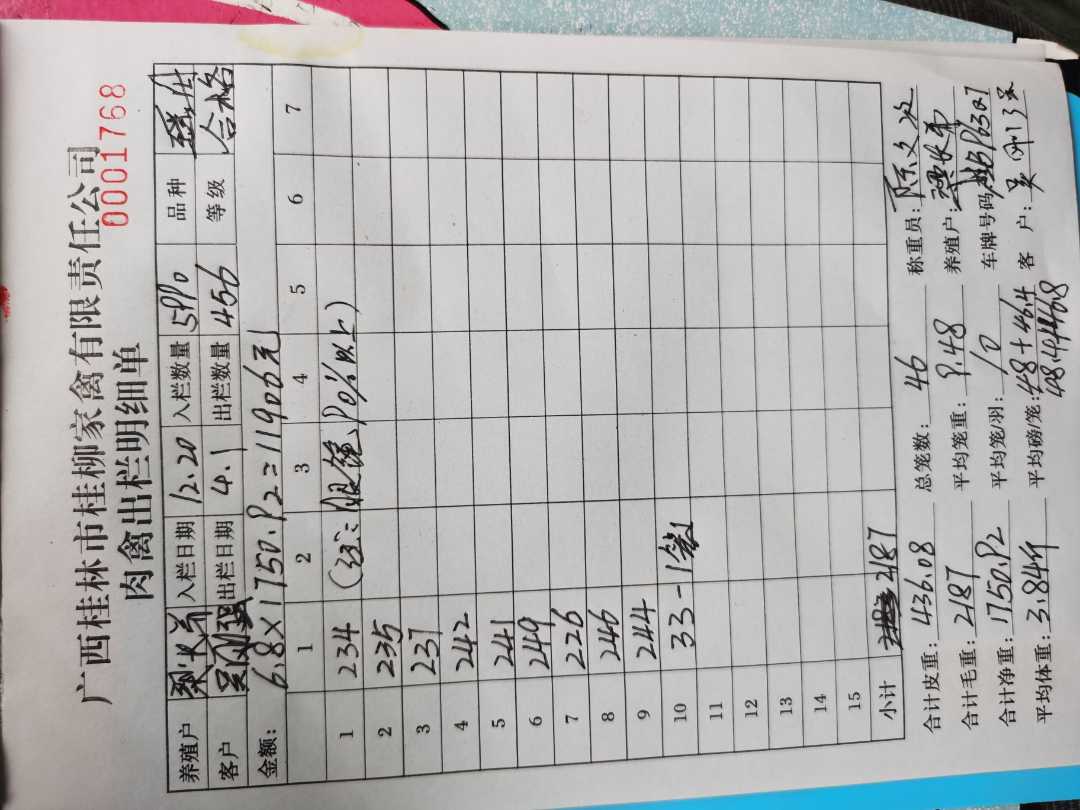 广西桂林市桂柳家禽有限责任公司
肉禽出栏明细单
0001768
养殖户 入栏日期 12.20 入栏数量 5990 品种
客户 吴刚强 出栏日期 4.1 出栏数量 456 等级 合格
金额: 6.8×1750.92=11906元
1 2 3 4 5 6 7
1 234 (注: 90%以上)
2 235
3 237
4 242
5 241
6 249
7 226
8 246
9 244
10 33-1笼
11
12
13
14
15
小计 2187
合计皮重: 436.08 总笼数: 46 称重员: 陈文文
合计毛重: 2187 平均笼重: 9.48 养殖户:
合计净重: 1750.92 平均笼/羽: 10 车牌号码:
平均体重: 3.84斤 平均磅/笼: 48+46.4 客 户: 吴刚强